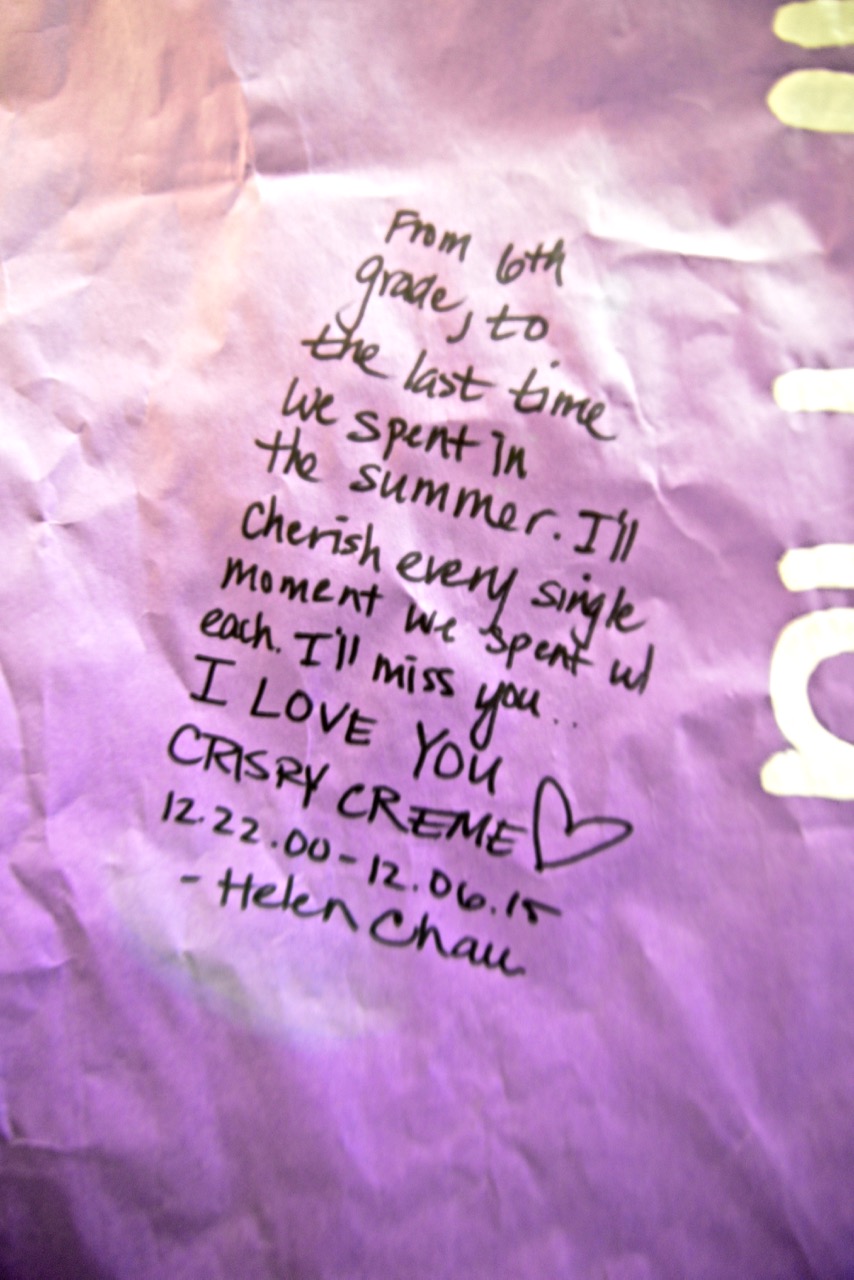 From 6th
grade, to
the last time
we spent in
the summer. I'll
cherish every single
moment we spent w/
each. I'll miss you..
I LOVE YOU
CRISPY CREME ♡
12.22.00 - 12.06.15
- Helen Chau